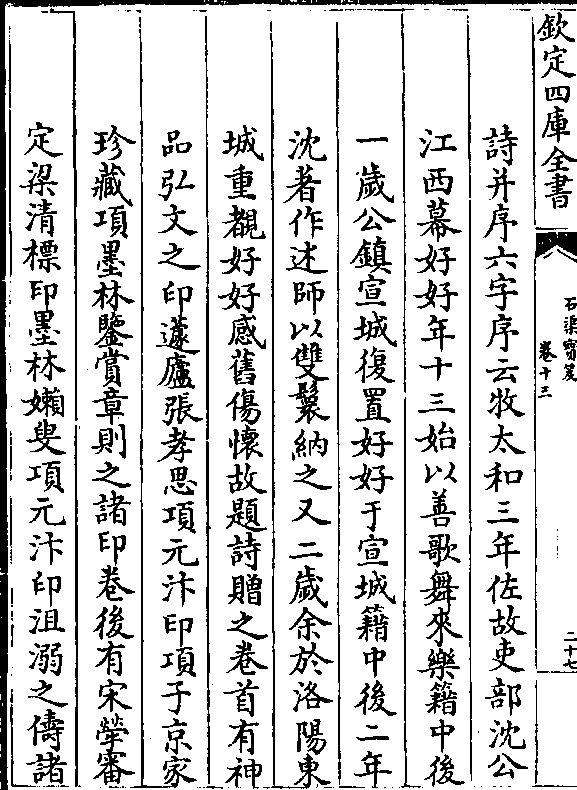 欽定四庫全書
石渠寶笈
卷十三
二十七
詩并序六字序云牧太和三年佐故吏部沈公
江西幕好好年十三始以善歌舞來樂籍中後
一歲公鎮宣城復置好好于宣城籍中後二年
沈著作述師以雙鬟納之又二歲余於洛陽東
城重覩好好感舊傷懷故題詩贈之卷首有神
品弘文之印蘧廬張孝思項元汴印項子京家
珍藏項墨林鑒賞章則之諸印卷後有宋犖審
定梁清標印墨林嬾叟項元汴印沮溺之儔諸